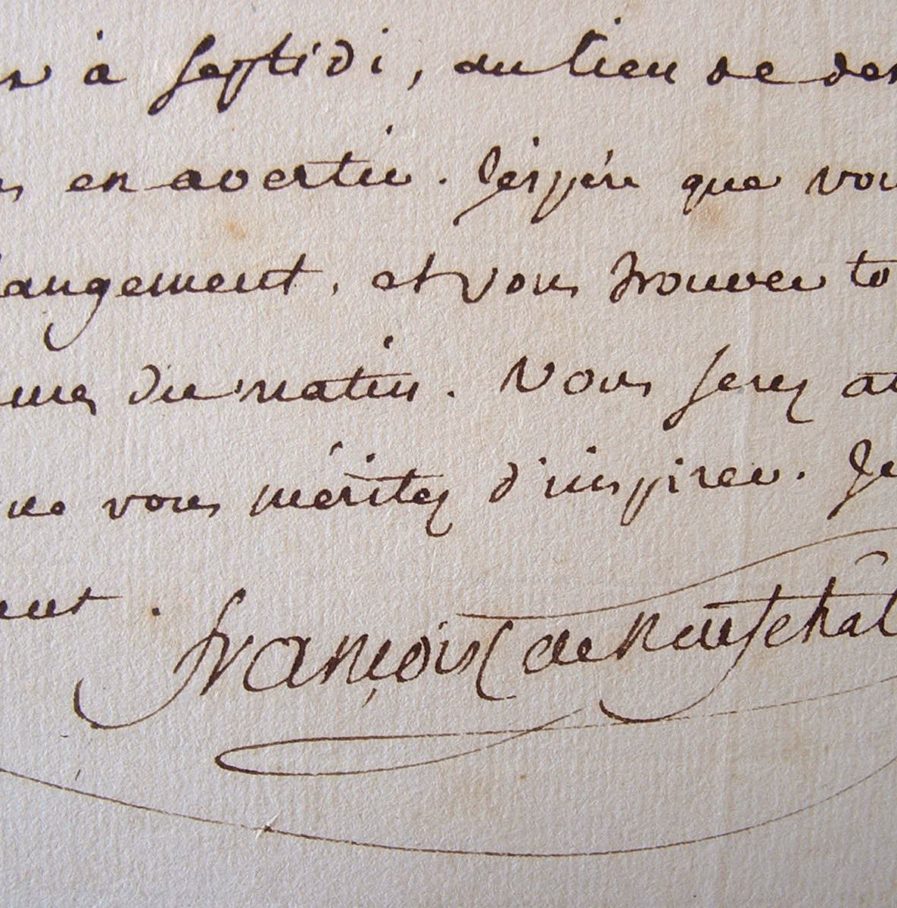 à septidi, au lieu de
en avertir. J'espère que vou
angement, et vous trouver to
du matin. Vous serez au
vous méritez d'inspirer. Je
ent. François de Neufchat